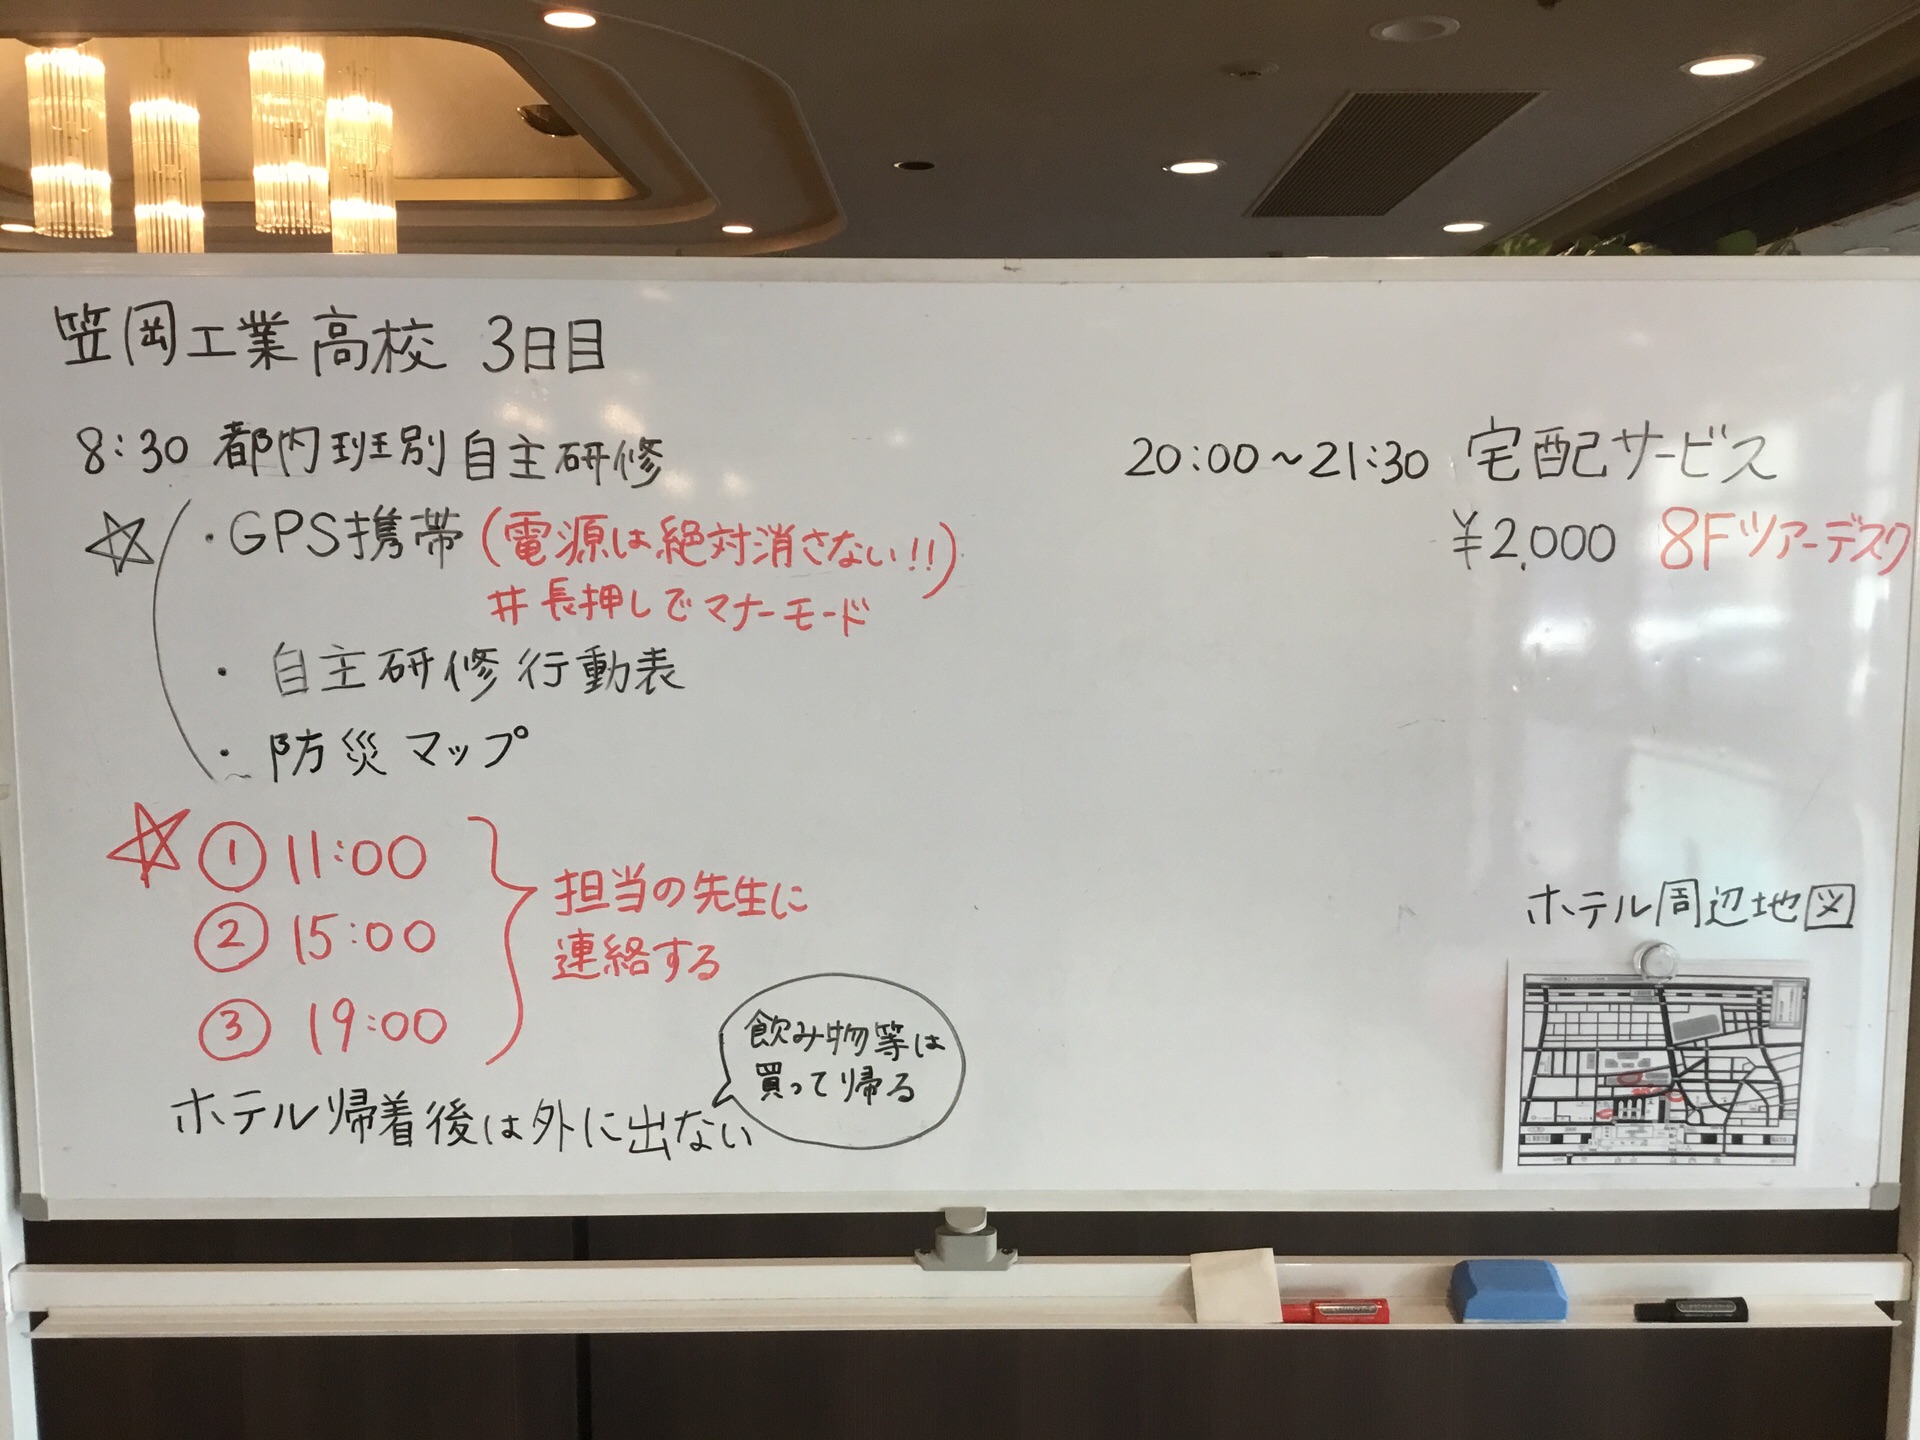 笠岡工業高校 3日目
8:30 都内班別自主研修
☆
・GPS携帯(電源は絶対消さない!!)
#長押しでマナーモード
・自主研修行動表
・防災マップ
☆
① 11:00
② 15:00
③ 19:00
担当の先生に
連絡する
ホテル帰着後は外に出ない
飲み物等は
買って帰る
20:00～21:30 宅配サービス
¥2,000 8Fツアーデスク
ホテル周辺地図